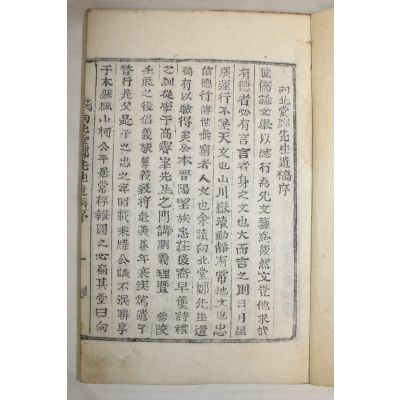 向北堂鄭先生遺稿序
世儒論文擧以德行為先文藝為後然文豈他求哉
有德者必有言言者身之文也大而言之則日月星
辰運行不忒天文也山川嶽瀆動靜有常地文也忠
信德行傳世無窮者人文也余讀向北堂鄭先生遺
稿有以驗得矣公本晋陽望族忠莊後裔早襲詩禮
之訓從學于高霽峯先生之門講劘義理曁
壬辰之後倡義募義穀將赴義善年衰斑篤遣子
替行是父是子之忠之孝昭載來牒公議不泯聯享
于本縣楓山祠公平居常存報國之心扁其堂曰向
向北堂鄭先生遺稿序